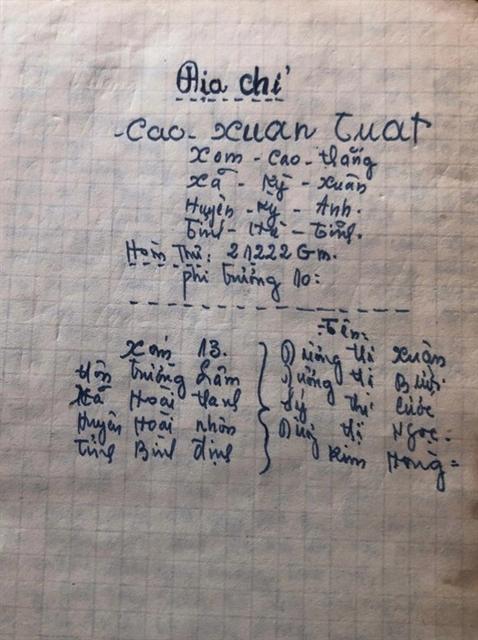 Địa chỉ
-Cao- Xuân Tuất
Xóm - Cao - thắng
Xã - Kỳ - Xuân
Huyện - Kỳ - Anh.
Tỉnh - Hà - Tĩnh.
Hòm Thư: 21222 Gm.
phi trường 10:
Xóm 13.
thôn trường Lâm
Xã Hoài thanh
Huyện Hoài nhơn
Tỉnh Bình định
Tên:
thị Xuân
thị Bưởi
thị Cước
thị Ngọc:
Kim Hồng=